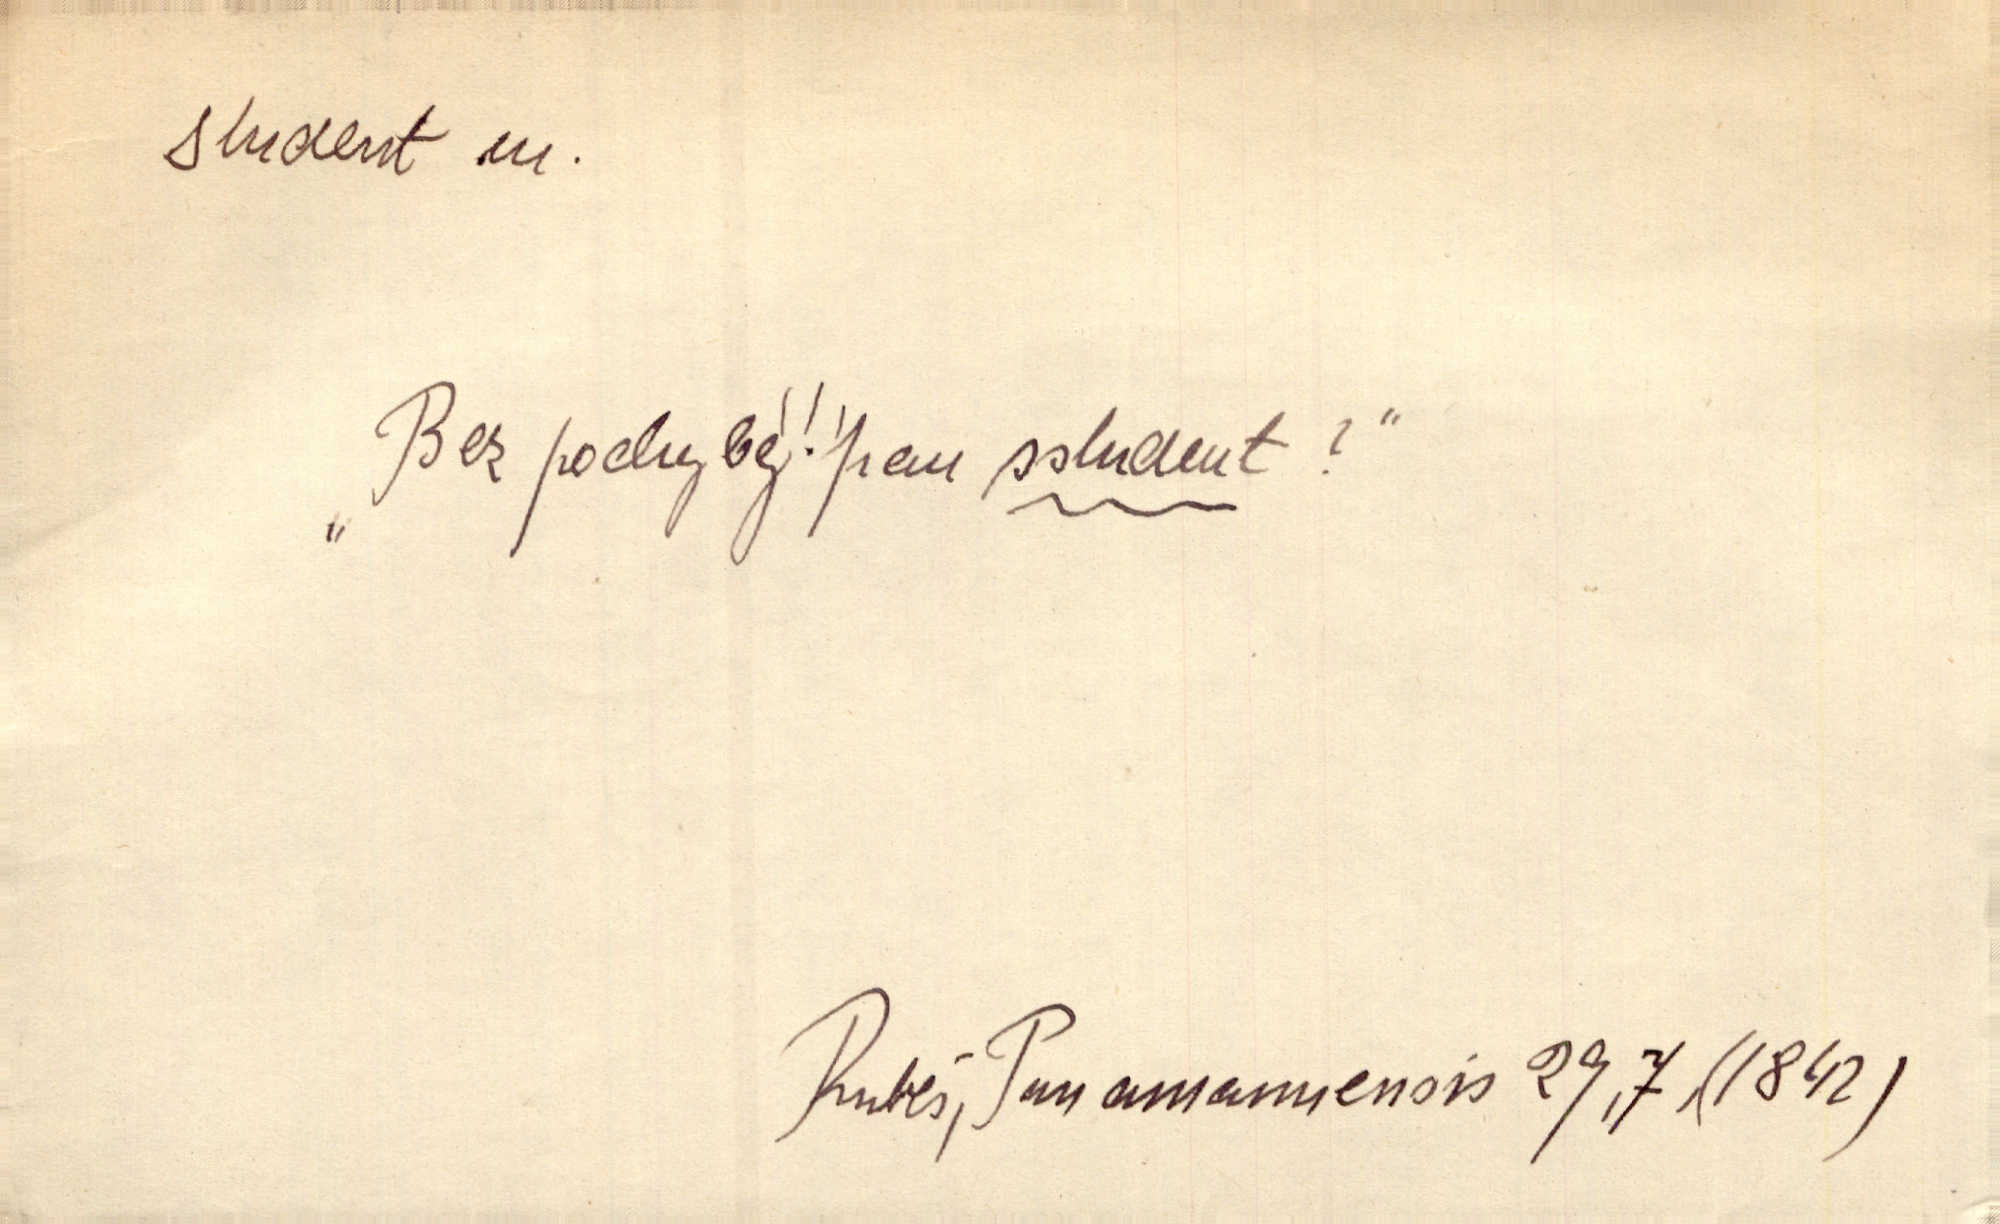 student m.
„Bez pochyby!! pan sstudent?"
Rubeš, Pan amanuensis 29,7 (1842)